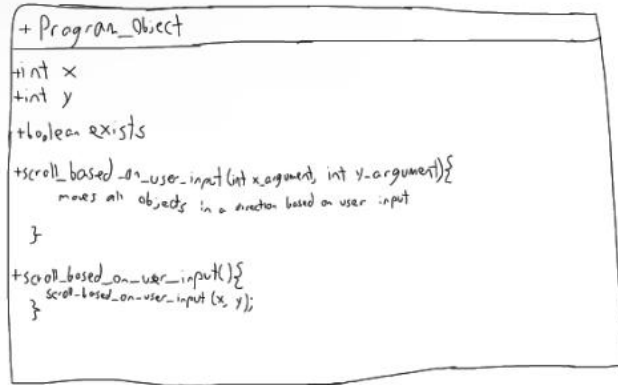 + Program_Object
+int x
+int y
+boolean exists
+scroll_based_on_user_input(int x_argument, int y_argument){
moves all objects in a direction based on user input
}
+scroll_based_on_user_input(){
scroll_based_on_user_input(x, y);
}